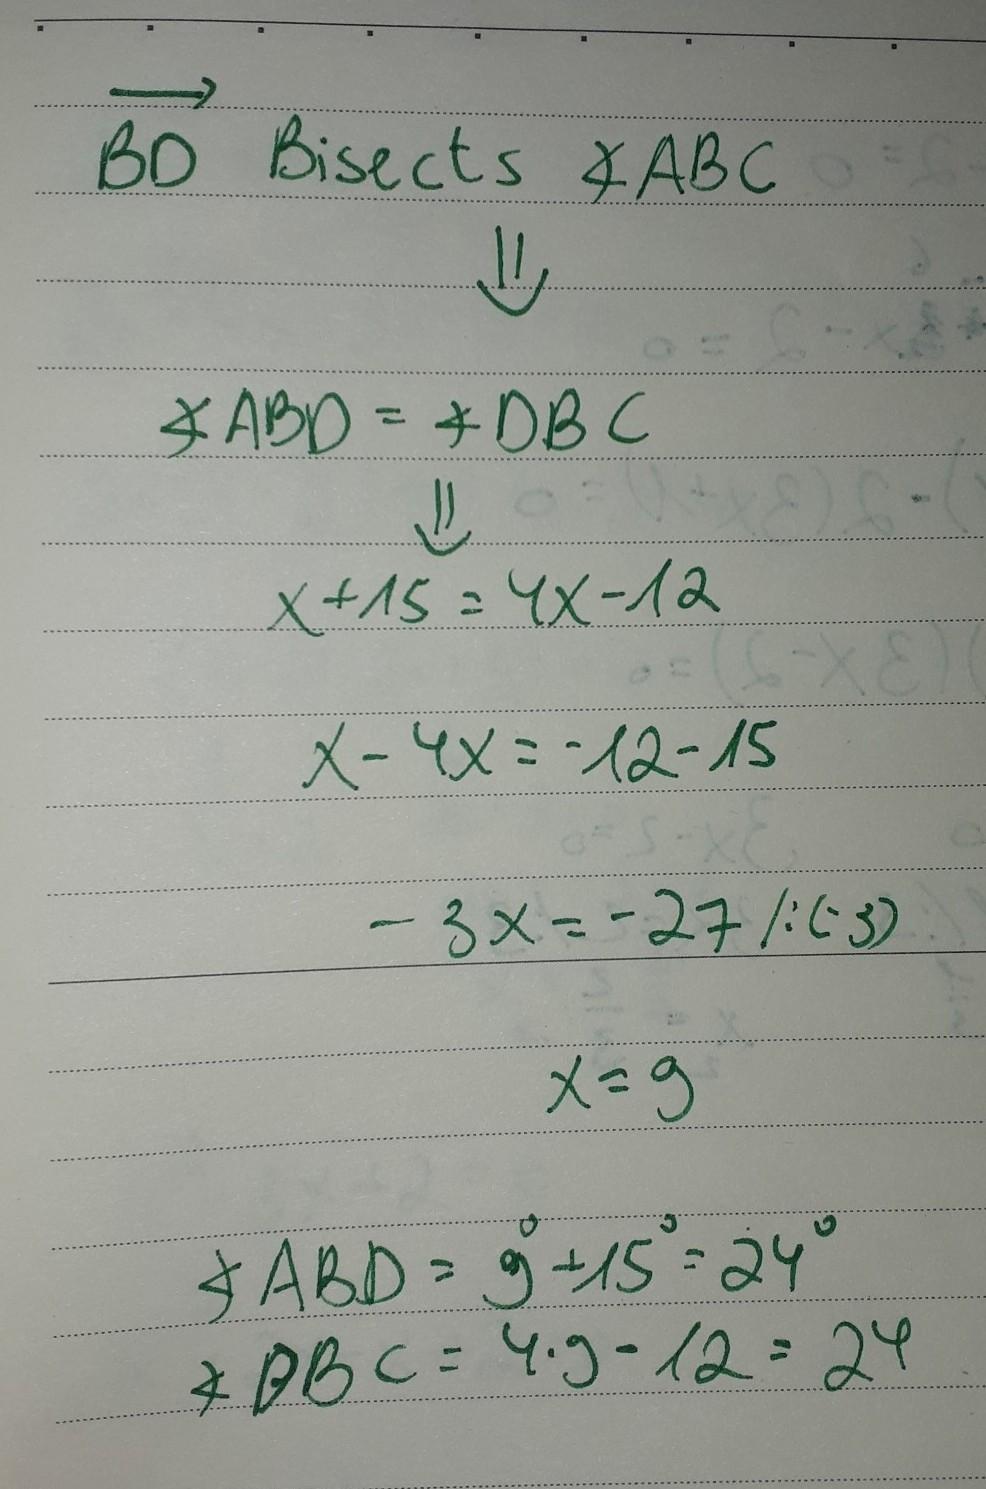 →
BD Bisects ∡ABC
⇓
∡ABD = ∡DBC
⇓
x+15 = 4x-12
x - 4x = -12-15
-3x = -27 /:(-3)
x = 9
∡ABD = 9°+15° = 24°
∡DBC = 4·9 - 12 = 24